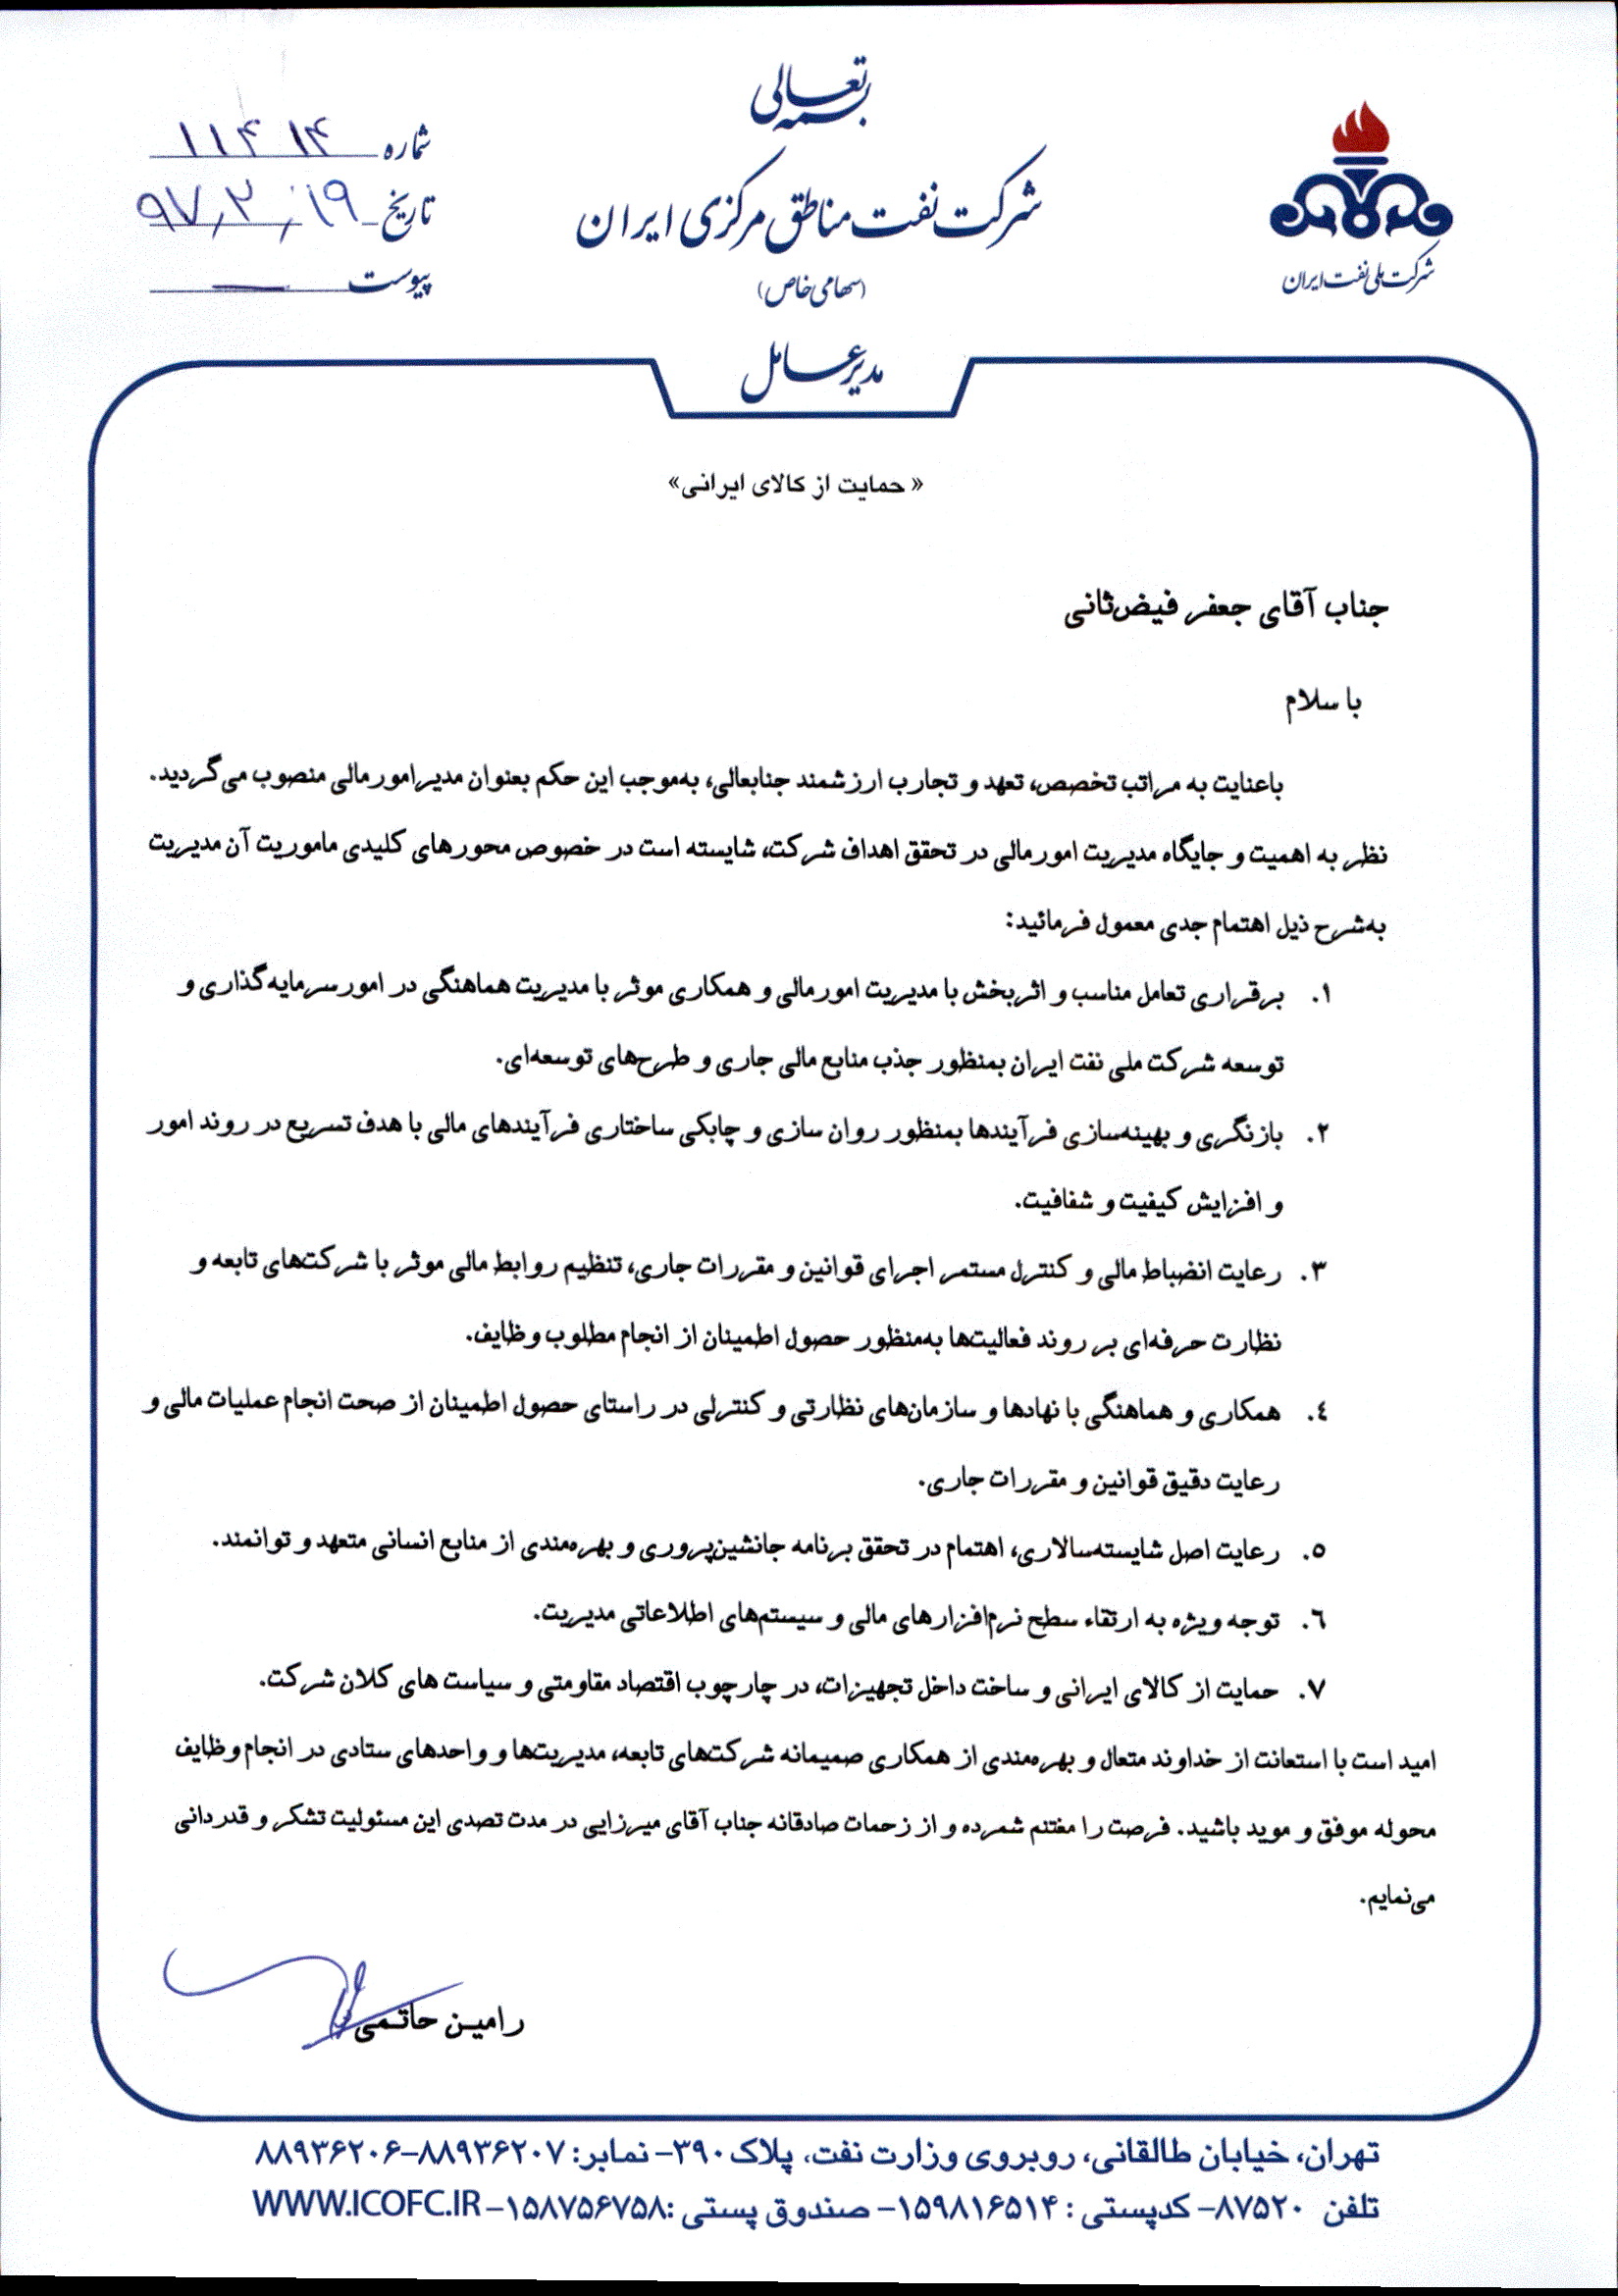 بسمه تعالی
شرکت نفت مناطق مرکزی ایران
(سهامی خاص)
مدیر عامل
شرکت ملی نفت ایران
شماره ۱۱۴۱۴
تاریخ ۹۷,۲,۱۹
پیوست —
« حمایت از کالای ایرانی»
جناب آقای جعفر فیض‌ثانی
با سلام
باعنایت به مراتب تخصص، تعهد و تجارب ارزشمند جنابعالی، به‌موجب این حکم بعنوان مدیر امور مالی منصوب می‌گردید.
نظر به اهمیت و جایگاه مدیریت امور مالی در تحقق اهداف شرکت، شایسته است در خصوص محورهای کلیدی ماموریت آن مدیریت
به‌شرح ذیل اهتمام جدی معمول فرمائید:
۱. برقراری تعامل مناسب و اثربخش با مدیریت امور مالی و همکاری موثر با مدیریت هماهنگی در امور سرمایه‌گذاری و
توسعه شرکت ملی نفت ایران بمنظور جذب منابع مالی جاری و طرح‌های توسعه‌ای.
۲. بازنگری و بهینه‌سازی فرآیندها بمنظور روان سازی و چابکی ساختاری فرآیندهای مالی با هدف تسریع در روند امور
و افزایش کیفیت و شفافیت.
۳. رعایت انضباط مالی و کنترل مستمر اجرای قوانین و مقررات جاری، تنظیم روابط مالی موثر با شرکت‌های تابعه و
نظارت حرفه‌ای بر روند فعالیت‌ها به‌منظور حصول اطمینان از انجام مطلوب وظایف.
٤. همکاری و هماهنگی با نهادها و سازمان‌های نظارتی و کنترلی در راستای حصول اطمینان از صحت انجام عملیات مالی و
رعایت دقیق قوانین و مقررات جاری.
٥. رعایت اصل شایسته‌سالاری، اهتمام در تحقق برنامه جانشین‌پروری و بهره‌مندی از منابع انسانی متعهد و توانمند.
٦. توجه ویژه به ارتقاء سطح نرم‌افزارهای مالی و سیستم‌های اطلاعاتی مدیریت.
۷. حمایت از کالای ایرانی و ساخت داخل تجهیزات، در چارچوب اقتصاد مقاومتی و سیاست های کلان شرکت.
امید است با استعانت از خداوند متعال و بهره‌مندی از همکاری صمیمانه شرکت‌های تابعه، مدیریت‌ها و واحدهای ستادی در انجام وظایف
محوله موفق و موید باشید. فرصت را مغتنم شمرده و از زحمات صادقانه جناب آقای میرزایی در مدت تصدی این مسئولیت تشکر و قدردانی
می‌نمایم.
رامین حاتمی
تهران، خیابان طالقانی، روبروی وزارت نفت، پلاک ۳۹۰- نمابر: ۸۸۹۳۶۲۰۷-۸۸۹۳۶۲۰۶
تلفن ۸۷۵۲۰- کدپستی : ۱۵۹۸۱۶۵۱۴- صندوق پستی :۱۵۸۷۵۶۷۵۸-WWW.ICOFC.IR